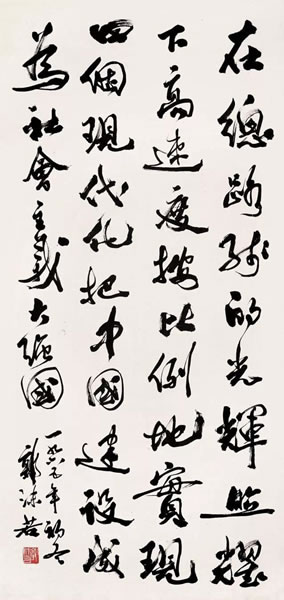 在總路线的光輝照耀
下高速度按比例地實現
四個現代化把中國建設成
為社會主義大強國
一九六五年初冬
郭沫若